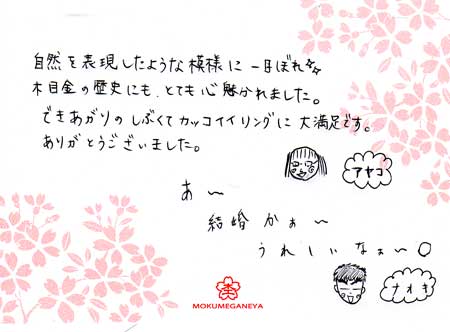 自然を表現したような模様に一目ぼれ☆☆
木目金の歴史にも、とても心魅かれました。
できあがりのしぶくてカッコイイリングに大満足です。
ありがとうございました。
アヤコ
あ〜
結婚かぁ〜
うれしいなぁ〜○
ナオキ
MOKUMEGANEYA